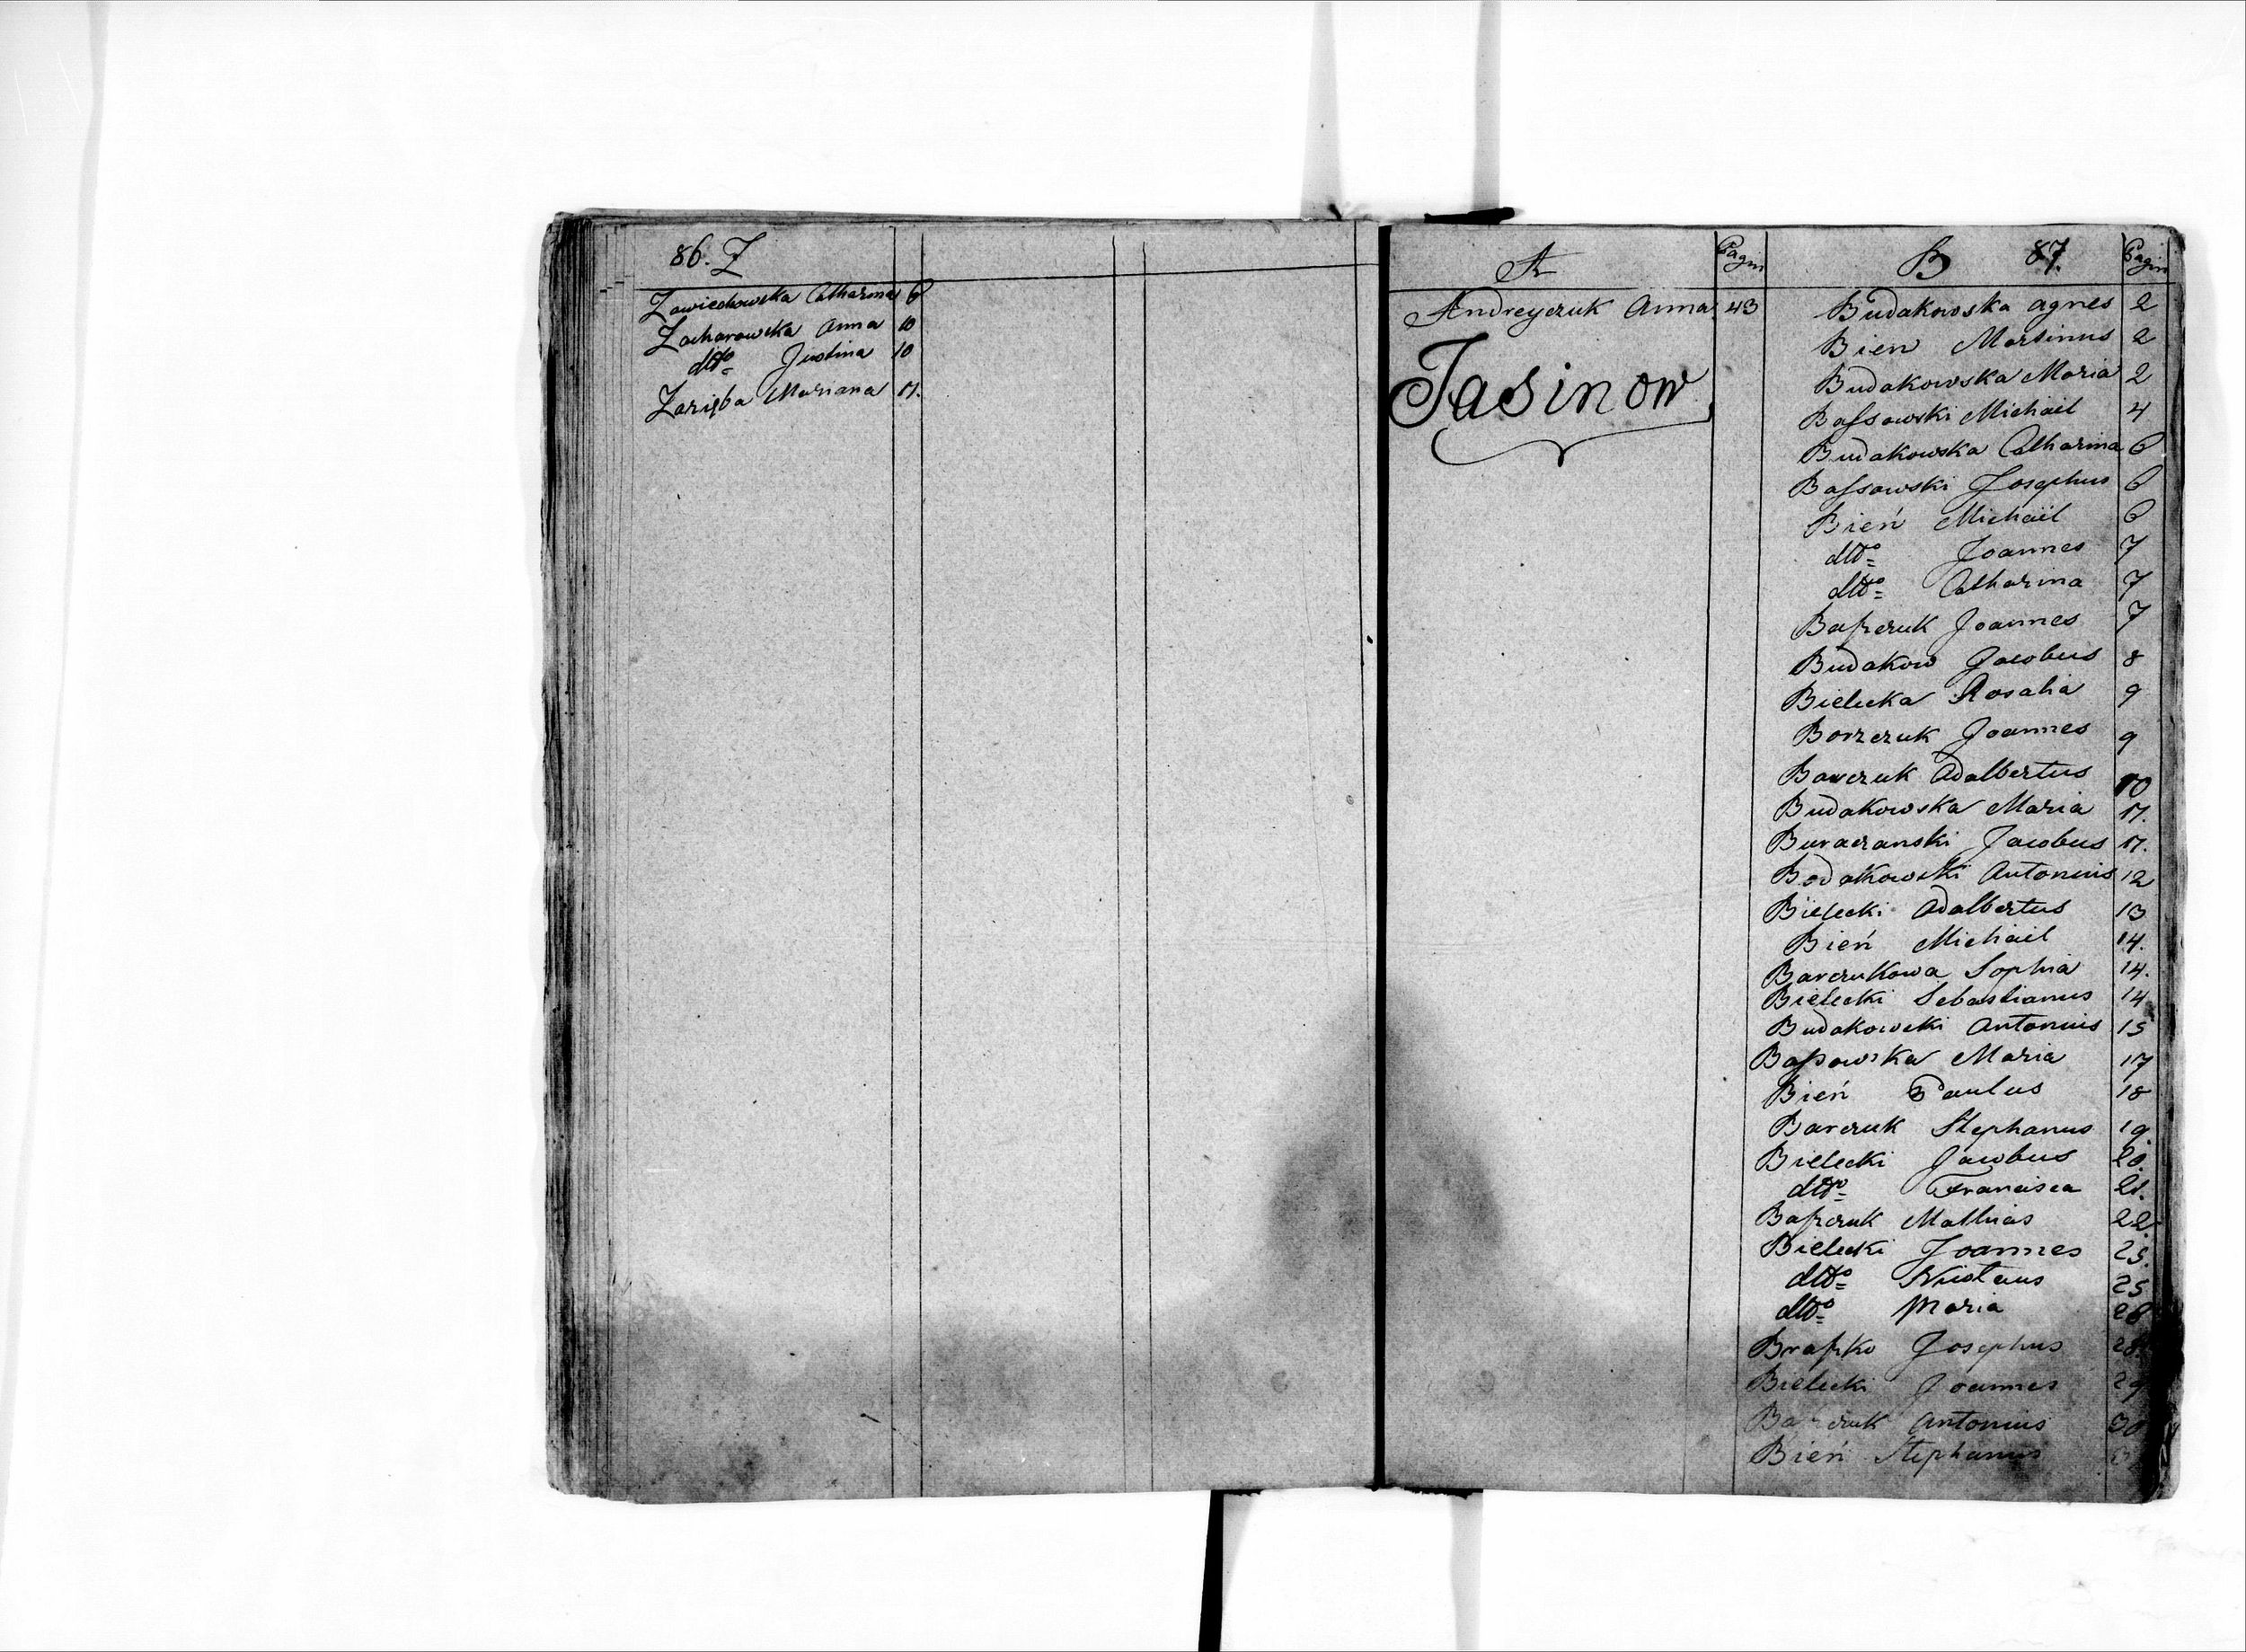 86. Z
Zawiechowska Catharina 6
Zacharowska Anna 10
dtto Justina 10
Zaręba Mariana 11.
A Pagin
Andreyczuk Anna 43
Jasinow
B 87. Pagin
Budakowska Agnes 2
Bien Martinus 2
Budakowska Maria 2
Baſsowski Michaël 4
Budakowska Catharina 6
Baſsowski Josephus 6
Bień Michaël 6
dtto Joannes 7
dtto Catharina 7
Baſzczuk Joannes 7
Budakow Jacobus 8
Bielecka Rosalia 9
Borzczuk Joannes 9
Barczuk Adalbertus 10
Budakowska Maria 11.
Buraczanski Jacobus 11.
Bodakowski Antonius 12
Bielecki Adalbertus 13
Bień Michaël 14.
Barczukowa Sophia 14.
Bielecki Sebastianus 14
Budakowski Antonius 15
Baſsowska Maria 17
Bień Paulus 18
Barczuk Stephanus 19.
Bielecki Jacobus 20.
dtto Francisca 21.
Baſzczuk Mathias 22.
Bielecki Joannes 25.
dtto 25
dtto Maria 26
Braſzko Josephus 28
Bielecki Joannes 29
Antonius 30
Bień Stephanus